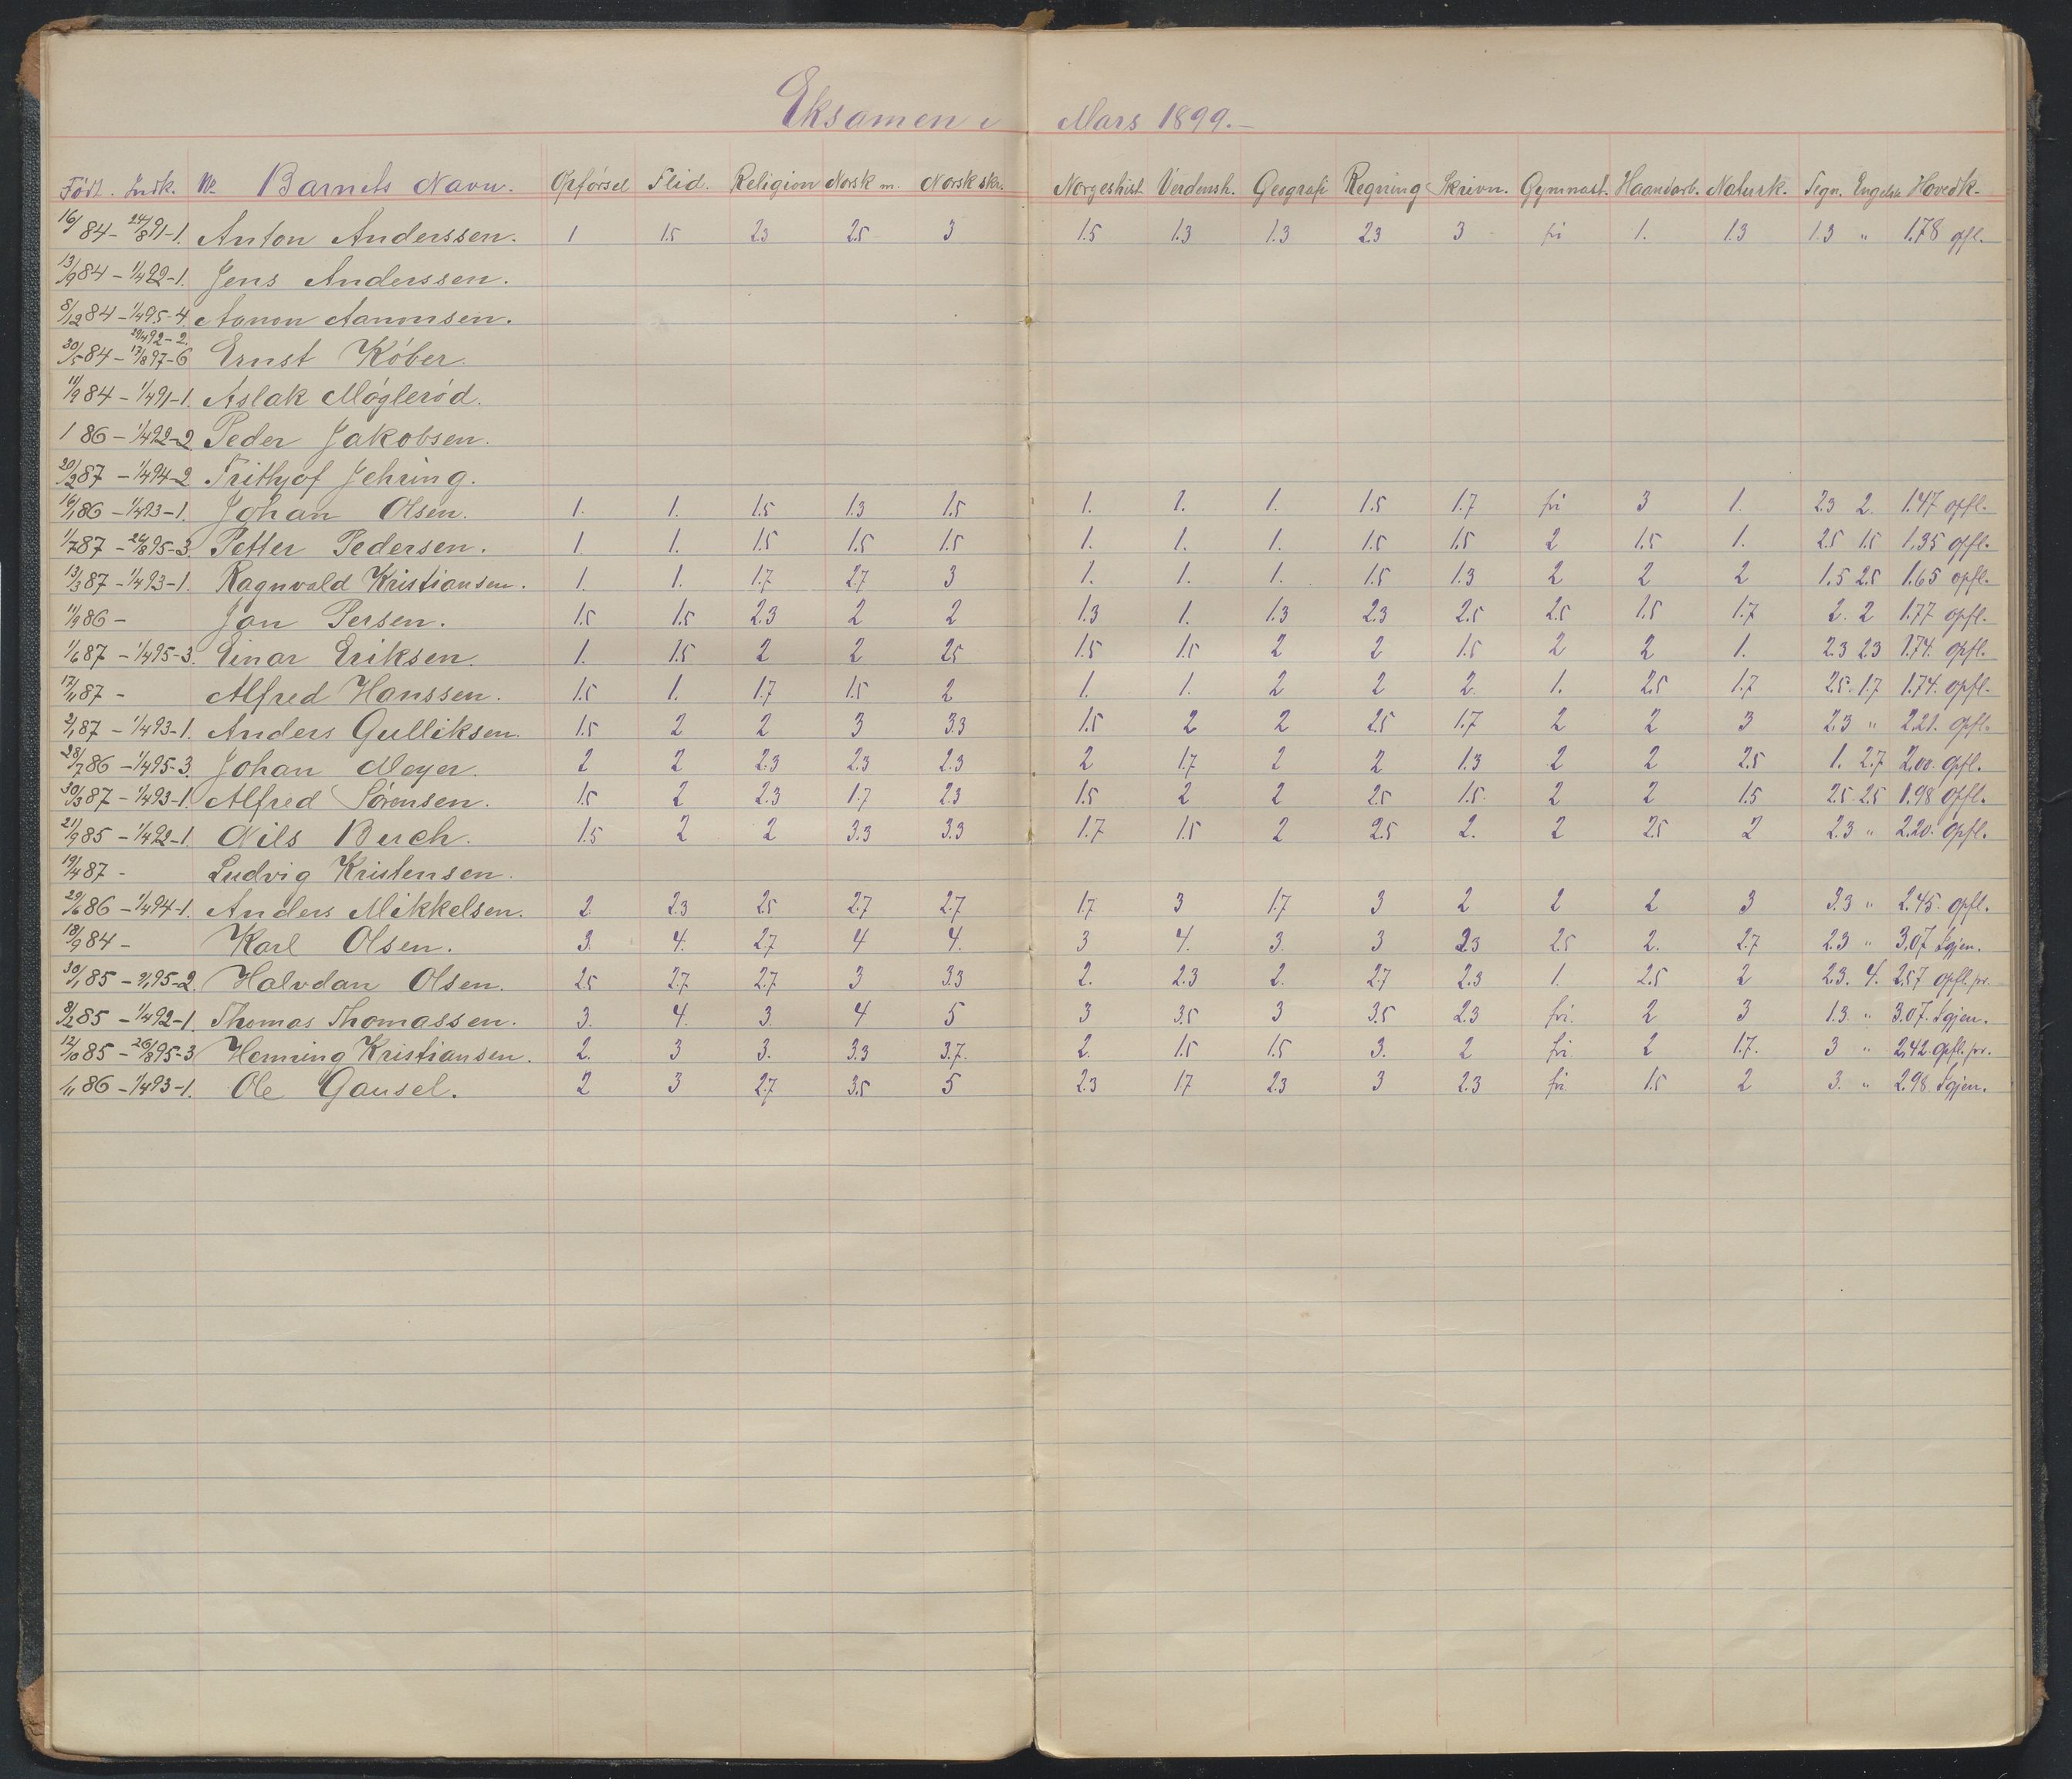 Eksamen i Mars 1899.—
Født. Indk. № Barnets Navn. Opførsel Flid. Religion Norsk m. Norsk skr. Norgeshist. Verdensh. Geografi Regning Skrivn. Gymnast. Haandarb. Naturk. Tegn. Engelsk Hovedk.
16/ 84 – 24/8 91 – 1. Anton Anderssen. 1 1.5 2.3 2.5 3 1.5 1.3 1.3 2.3 3 fri 1. 1.3 1.3 " 1.78 opfl.
13/9 84 – 1/4 92 – 1. Jens Anderssen.
8/12 84 – 1/4 95 – 4. Aanon Aanonsen.
29/4 92 – 2.
30/5 84 – 17/8 97 – 6 Ernst Köber.
11/9 84 – 1/4 91 – 1. Aslak Møglerød.
1 86 – 1/4 92 – 2 Peder Jakobsen.
20/2 87 – 1/4 94 – 2 Frithjof Jehring.
16/1 86 – 1/4 93 – 1. Johan Olsen. 1. 1. 1.5 1.3 1.5 1. 1. 1. 1.5 1.7 fri 3 1. 2.3 2. 1.47 opfl.
1/7 87 – 24/8 95 – 3. Petter Pedersen. 1. 1. 1.5 1.5 1.5 1. 1. 1. 1.5 1.5 2 1.5 1. 2.5 1.5 1.35 opfl.
13/3 87 – 1/4 93 – 1. Ragnvald Kristiansen. 1. 1. 1.7 2.7 3 1. 1. 1. 1.5 1.3 2 2 2 1.5 2.5 1.65 opfl.
11/9 86 – Jan Persen. 1.5 1.5 2.3 2 2 1.3 1. 1.3 2.3 2.5 2.5 1.5 1.7 2. 2 1.77 opfl.
1/6 87 – 1/4 95 – 3. Einar Eriksen. 1. 1.5 2 2 2.5 1.5 1.5 2 2 1.5 2 2 1. 2.3 2.3 1.74. opfl.
17/11 87 – Alfred Hanssen. 1.5 1. 1.7 1.5 2 1. 1. 2 2 2. 1. 2.5 1.7 2.5. 1.7 1.74. opfl.
2/1 87 – 1/4 93 – 1. Anders Gulliksen. 1.5 2 2 3 3.3 1.5 2 2 2.5 1.7 2 2 3 2.3 " 2.21. opfl.
28/7 86 – 1/4 95 – 3. Johan Meyer. 2 2 2.3 2.3 2.3 2 1.7 2 2 1.3 2 2 2.5 1. 2.7 2.00. opfl.
30/3 87 – 1/4 93 – 1. Alfred Sørensen. 1.5 2 2.3 1.7 2.3 1.5 2 2 2.5 1.5. 2 2 1.5 2.5. 2.5 1.98 opfl.
21/9 85 – 1/4 92 – 1. Nils Buch. 1.5 2 2 3.3 3.3 1.7 1.5 2 2.5 2. 2 2.5 2 2.3 " 2.20. opfl.
19/4 87 – Ludvig Kristensen.
29/6 86 – 1/4 94 – 1. Anders Mikkelsen. 2 2.3 2.5 2.7 2.7 1.7 3 1.7 3 2 2 2 3 3.3 " 2.45. opfl.
18/9 84 – Karl Olsen. 3. 4. 2.7 4 4. 3 4. 3. 3 2.3 2.5 2. 2.7 2.3 " 3.07 Igjen.
30/1 85 – 2/1 95 – 2. Halvdan Olsen. 2.5 2.7 2.7 3 3.3 2. 2.3 2. 2.7 2.3 1. 2.5 2 2.3. 4. 2.57 opfl. pr.
9/2 85 – 1/4 92 – 1. Thomas Thomassen. 3. 4. 3. 4 5 3 3.5 3 3.5 2.3 fri. 2 3 1.3. " 3.07. Igjen.
12/10 85 – 26/8 95 – 3 Henning Kristiansen. 2. 3 3. 3.3 3.7. 2. 1.5 1.5 3. 2 fri. 2 1.7. 3 " 2.42 opfl. pr.
1/11 86 – 1/4 93 – 1. Ole Gausel. 2 3 2.7 3.5 5 2.3 1.7 2.3 3 2.3 fri. 1.5 2 3. " 2.98. Igjen.